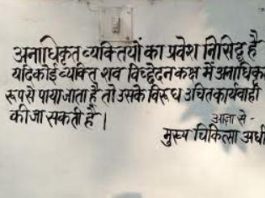 अनाधिकृत व्यक्तियों का प्रवेश निसिद्ध है
यदि कोई व्यक्ति शव विच्छेदन कक्ष में अनाधिकृ
रूप से पाया जाता है तो उसके विरूध उचित कार्यवाही
की जा सकती है।
आज्ञा से -
मुख्य चिकित्सा अधी